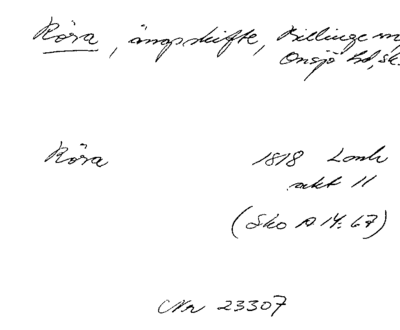 Röra, ängsskifte, Billinge
Onsjö hd, sk.
Röra 1818 Lantm
akt 11
(Sko A 14:67)
Nr 23307